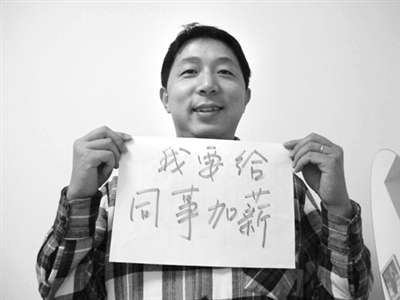 我要给
同事加薪